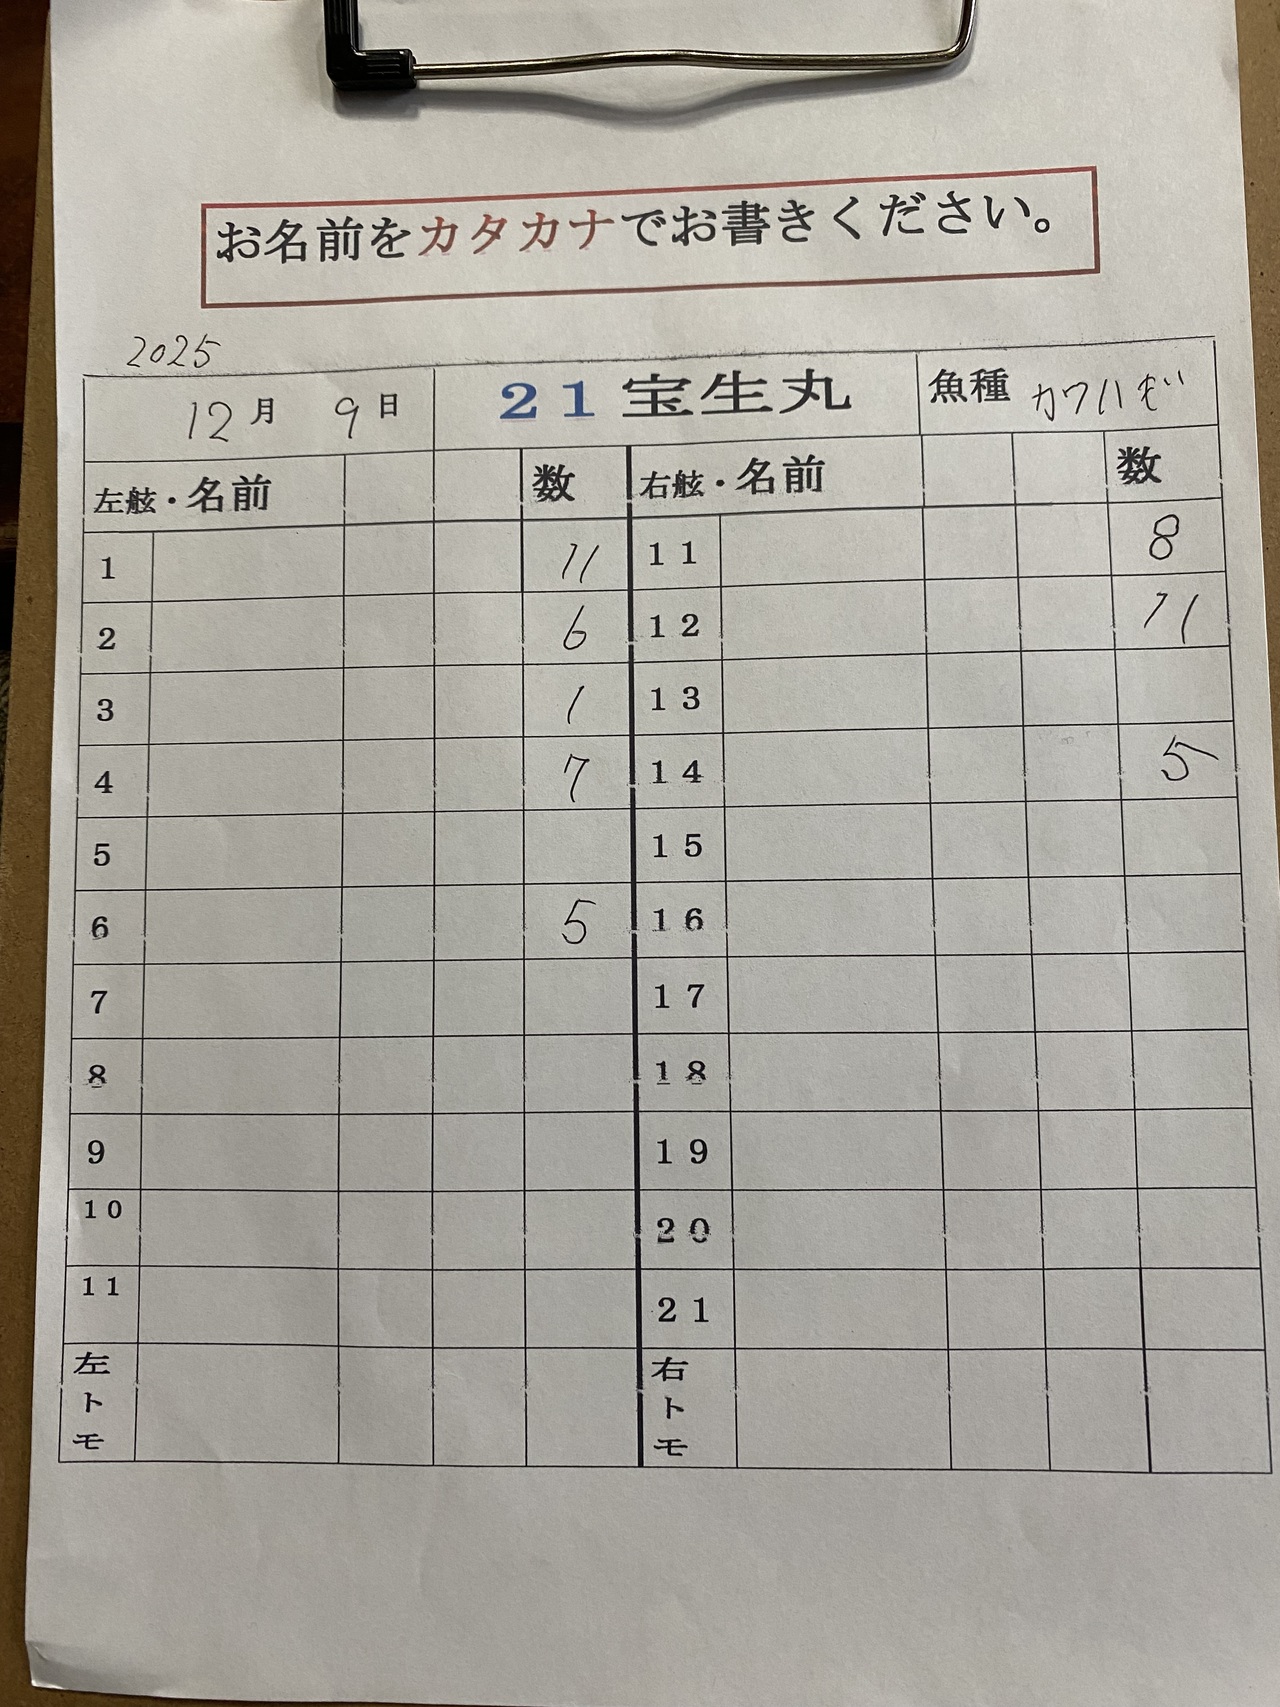 お名前をカタカナでお書きください。
2025
12月 9日 21宝生丸 魚種 カワハギ
左舷・名前 数 右舷・名前 数
1 11 11 8
2 6 12 11
3 1 13
4 7 14 5
5 15
6 5 16
7 17
8 18
9 19
10 20
11 21
左トモ 右トモ